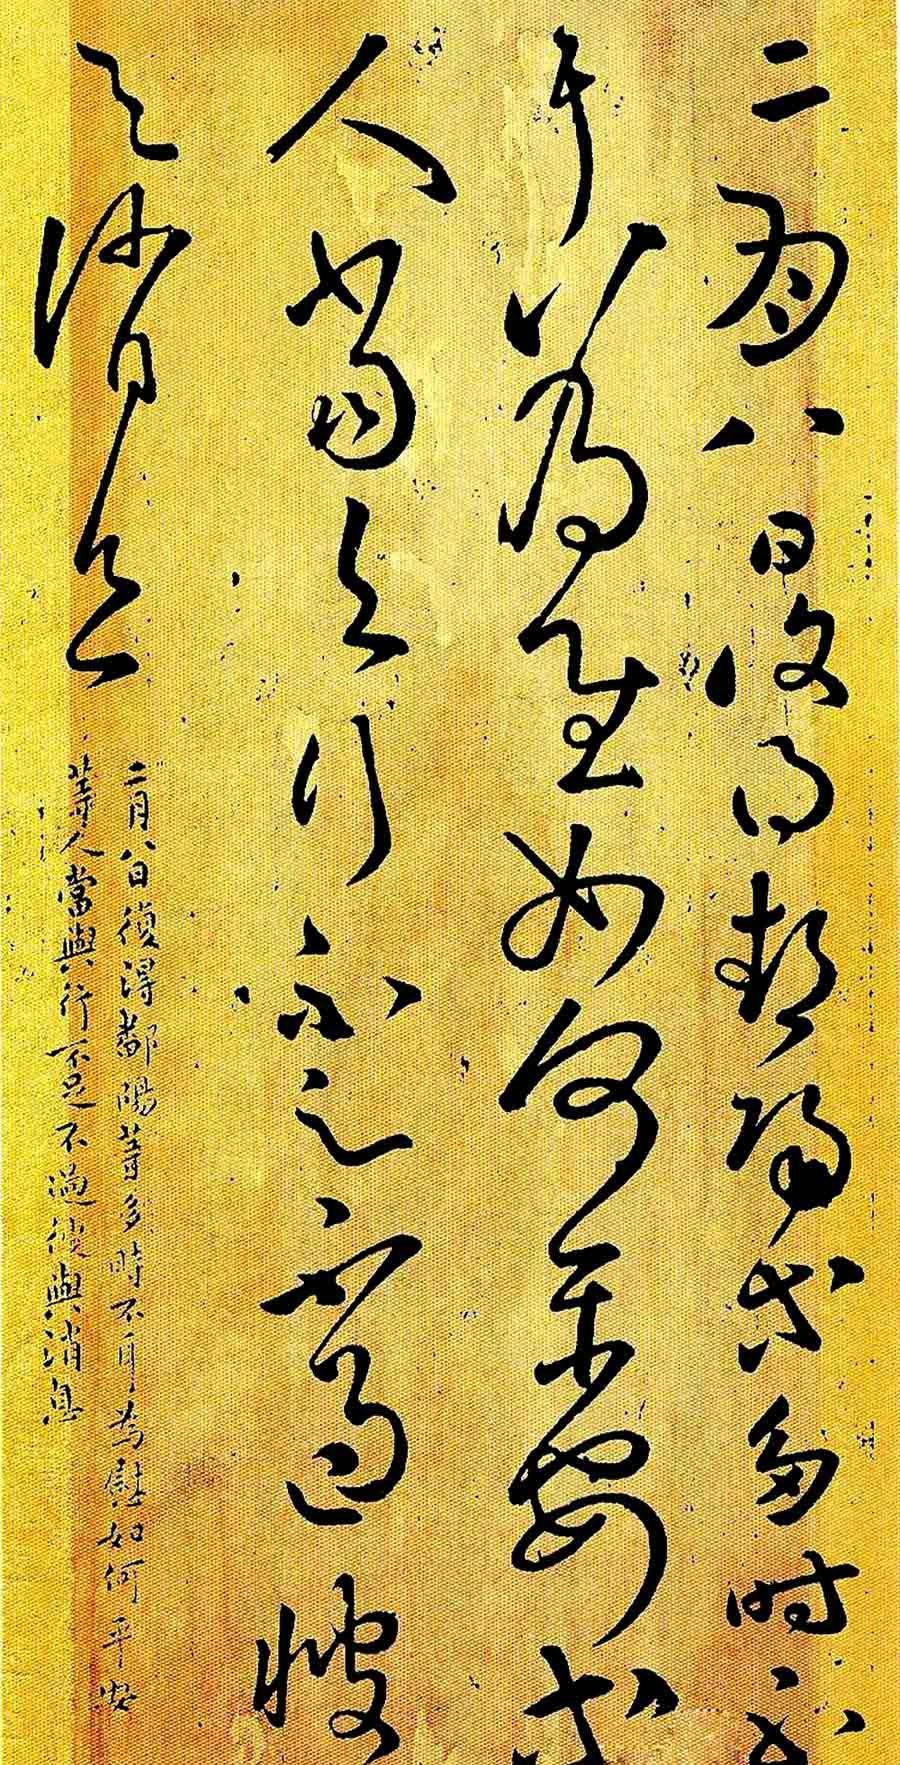 二月八日復得鄱陽等多時不
耳為慰如何平安等
人當與行不足不過復
與消息
二月八日復得鄱陽等多時不耳為慰如何平安
等人當與行不足不過復與消息